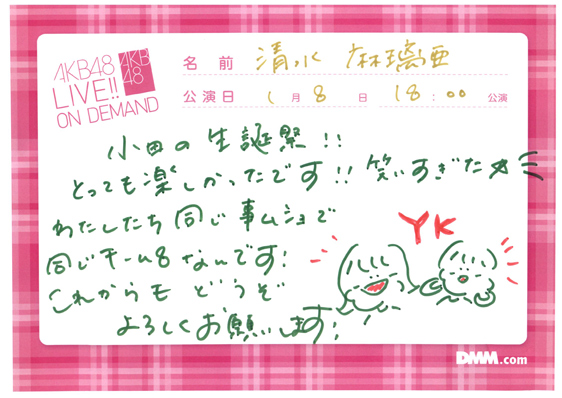 AKB48
LIVE!!
ON DEMAND
AKB
48
名前 清水 麻璃亜
公演日 1月8日 18:00 公演
小田の生誕祭!!
とっても楽しかったです!! 笑いすぎた☆
わたしたち同じ事ムショで
同じチーム8なんです!
これからもどうぞ
よろしくお願いします!
YK
DMM.com